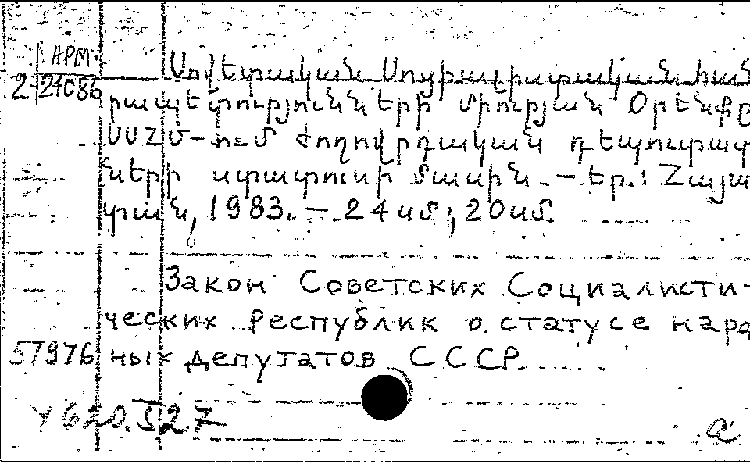 АРМ
2-21086
Սովետական Սոցիալիստական Հան
րապետությունների միության Օրենքը
ՍՍՀՄ-ում ժողովրդական դեպուտատ
ների ստատուսի մասին. - Եր.: Հայա
տան, 1983. - 24 սմ; 20 սմ.
Закон Советских Социалисти-
ческих Республик о статусе наро
57976 ных депутатов СССР
У 620.527
а